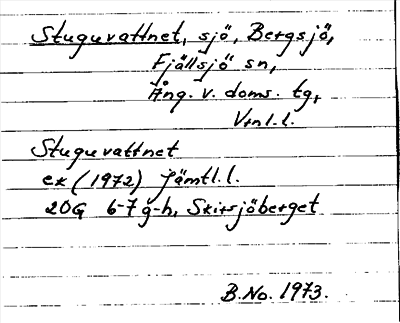 Stuguvattnet, sjö, Bergsjö,
Fjällsjö sn,
Ång. v. doms. tg,
Vrnl.l.
Stuguvattnet
ek (1972) Jämtl.l.
20G 6-7 g-h, Skirsjöberget
B.No. 1973.